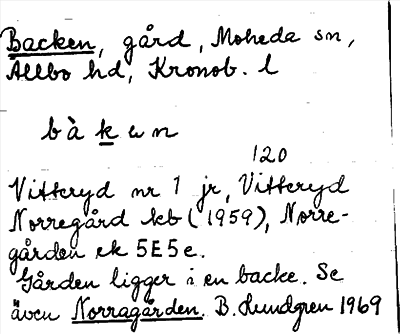 Backen, gård, Moheda sn,
Allbo hd, Kronob. l
bàken
120
Vitteryd nr 1 jr, Vitteryd
Norregård kb (1959), Norre-
gården ek 5E5e.
Gården ligger i en backe. Se
även Norragården. B. Lundgren 1969